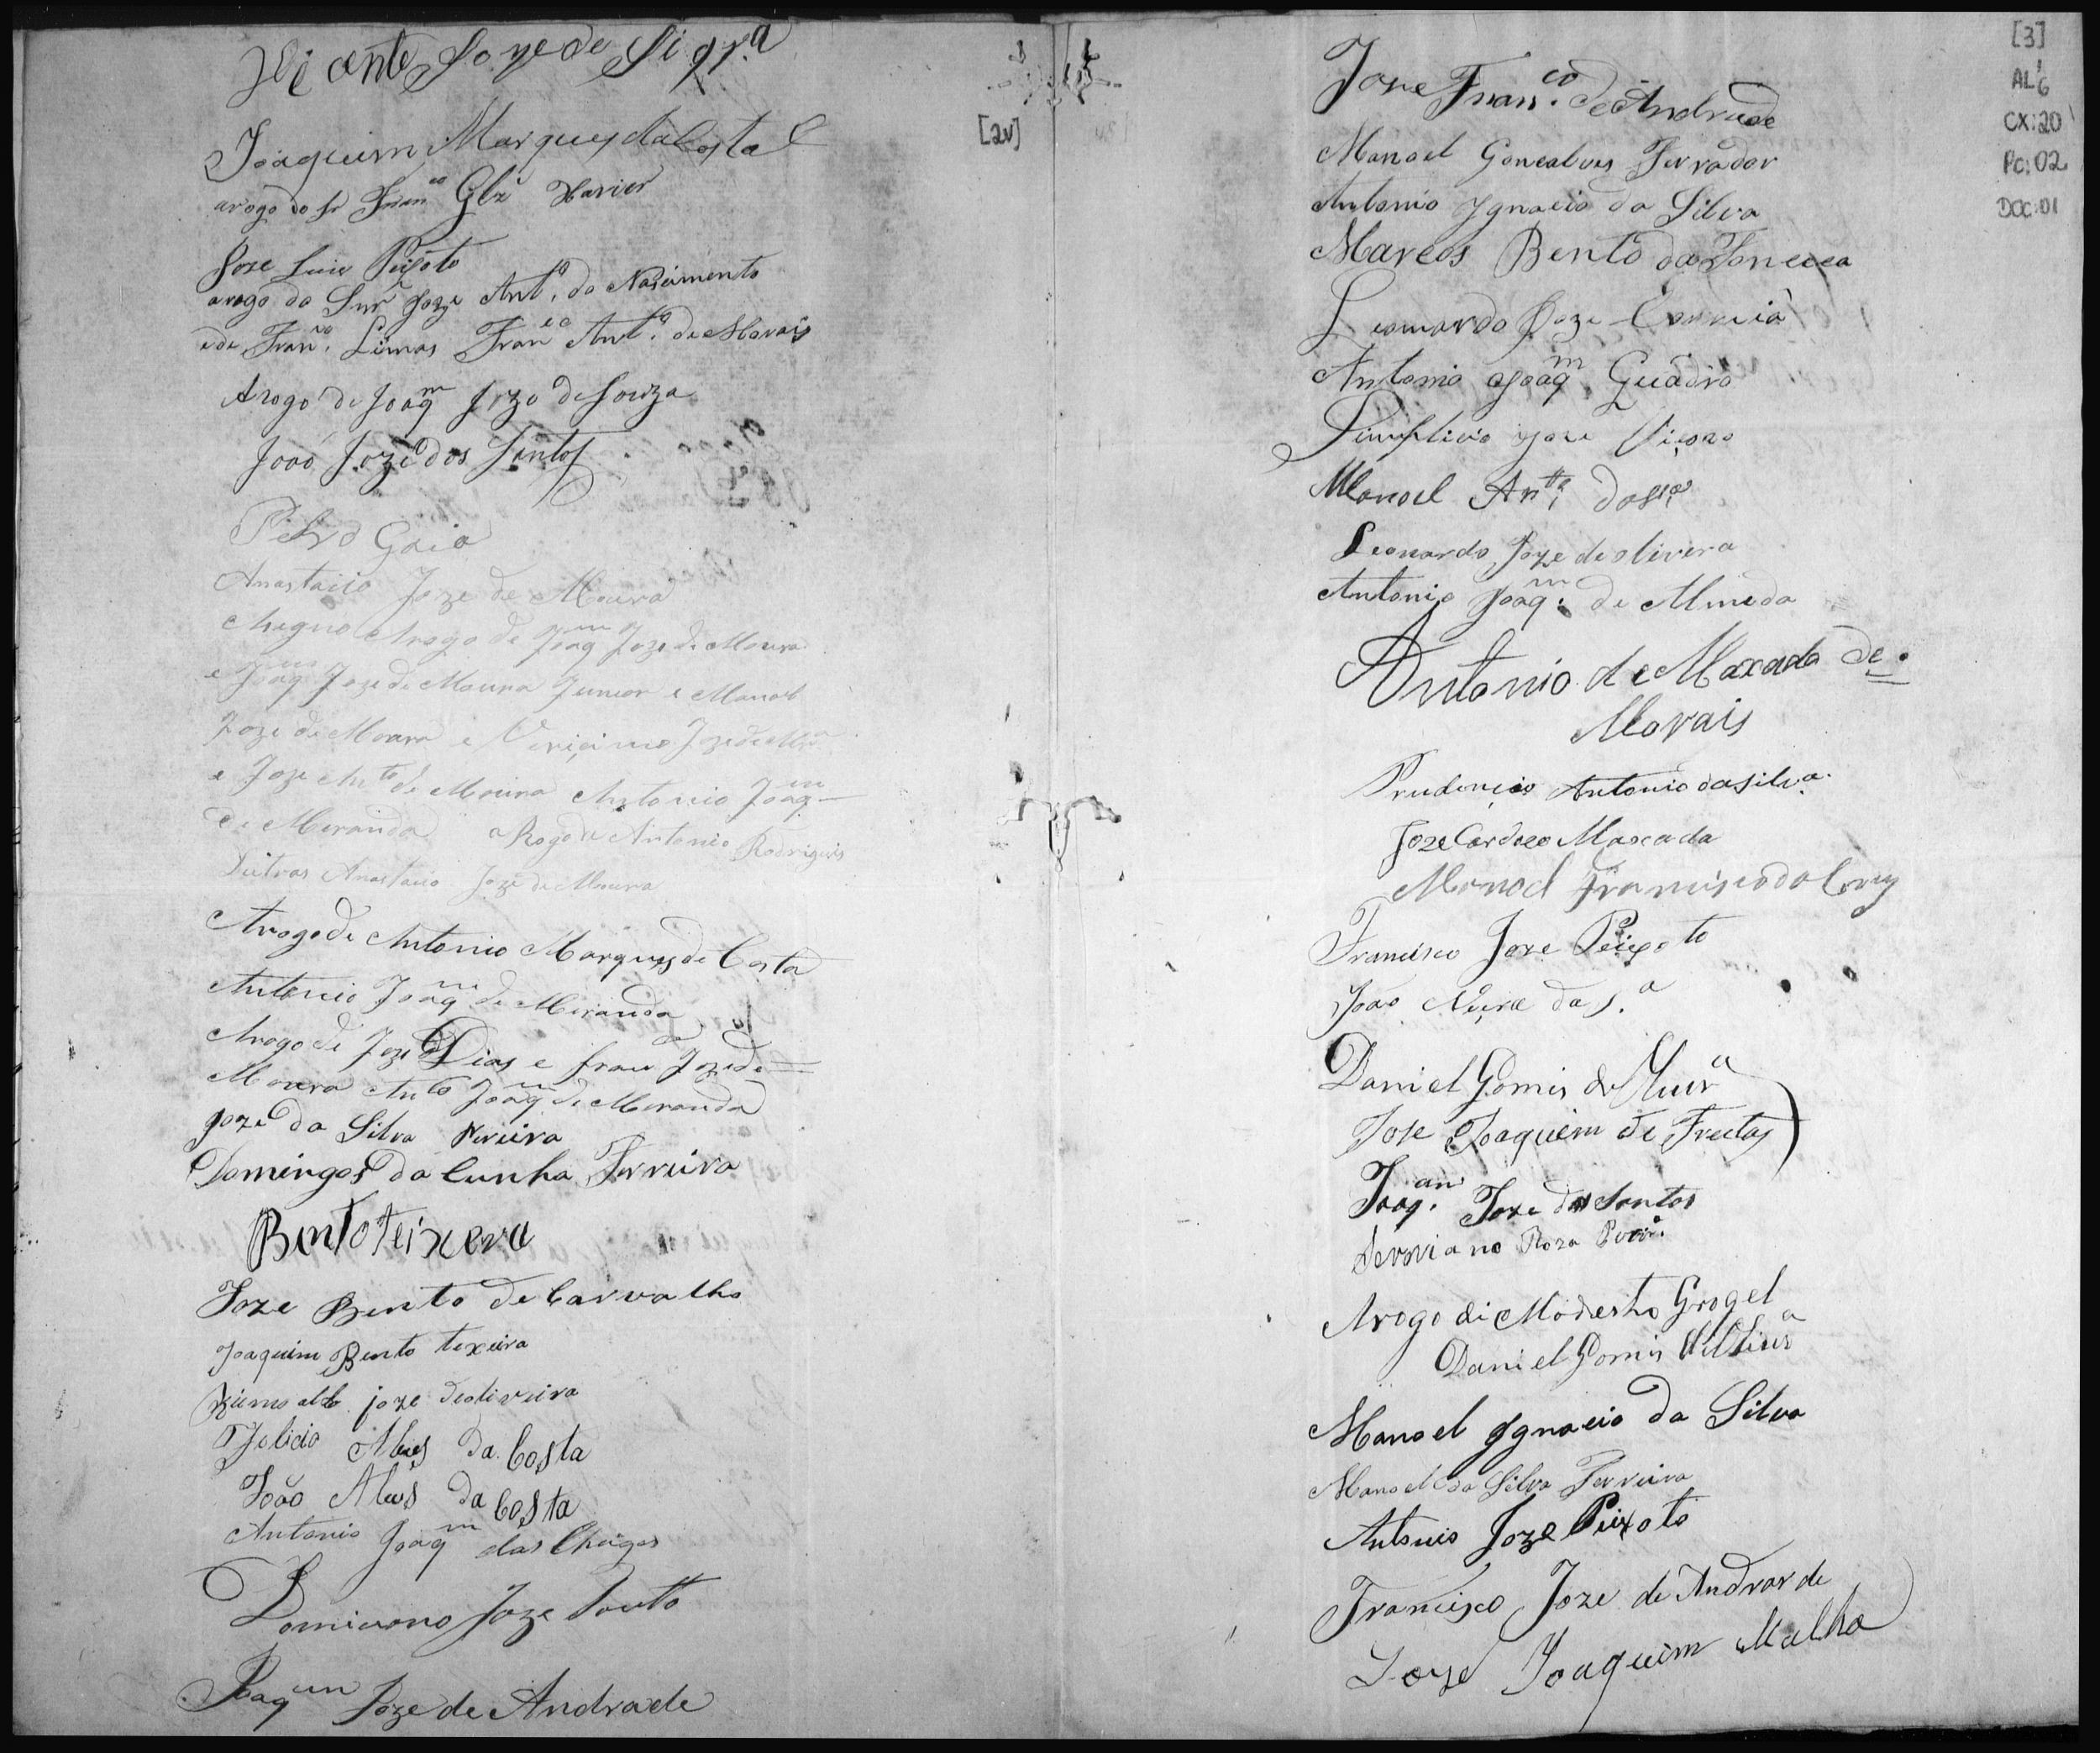 Vicente Joze de Siqr.a
Joaquim Marques da Costa
arogo do Sr Fran co Glz Xavier
[2v]
Joze Luis Peixoto
arogo do Snr Joze Ant.o do Nacimento
e de Fran.co Lemos Fran co Ant.o de Morais
Arogo de Joaq m Joze de Souza
João Joze dos Santos
Pedro Gaia
Anastacio Joze de Moura
Arogo de Joaq m Joze de Moura
e Joaq m Joze de Moura Junior e Manoel
Joze de Moura e Joze de
e Joze An to de Moura Antonio Joaq m
de Meranda aRogo de Antonio Rodrigueis
Dutras Anastacio Joze de Moura
Arogo de Antonio Marques da Costa
Antonio Joaq m de Miranda
Arogo de Joze Dias e Joze de
Moura An to Joaq m de Meranda
Joze da Silva Pereira
Domingos da Cunha Ferreira
Bento teixera
Joze Bento de Carvalho
Joaquim Bento texeira
joze deoliveira
Felicio Alves da Costa
João Alves da Costa
Antonio Joaq m das Chagas
Joze Couto
Joaq uin Joze de Andrade
[3]
AL'6
CX:20
PC:02
DOC:01
Joze Fran.co de Andrade
Manoel Goncalves Ferrador
Antonio Ignacio da Silva
Marcos Bento da Fonceca
Leonardo Joze Correia
Antonio Joaq m Guadro
Simplicio Joze
Manoel An to da S.a
Leonardo Joze de olivera
Antonio Joaq.m de Almeda
Antonio de Maxado de
Morais
Prudencio Antonio da silva
Joze Cardozo Maxado
Manoel Francisco da Cruz
Francisco Joze Peixoto
João da S.a
Daniel Gomis
Jose Joaquim de Freitas
Joaq.am Joze dos Santos
Severiano Roza
Arogo di Modesto Grogel
Daniel Gomis
Manoel Ignacio da Silva
Manoel da Silva Ferreira
Antonio Joze Peixoto
Francisco Joze de Andrade
Joze Joaquim Malho